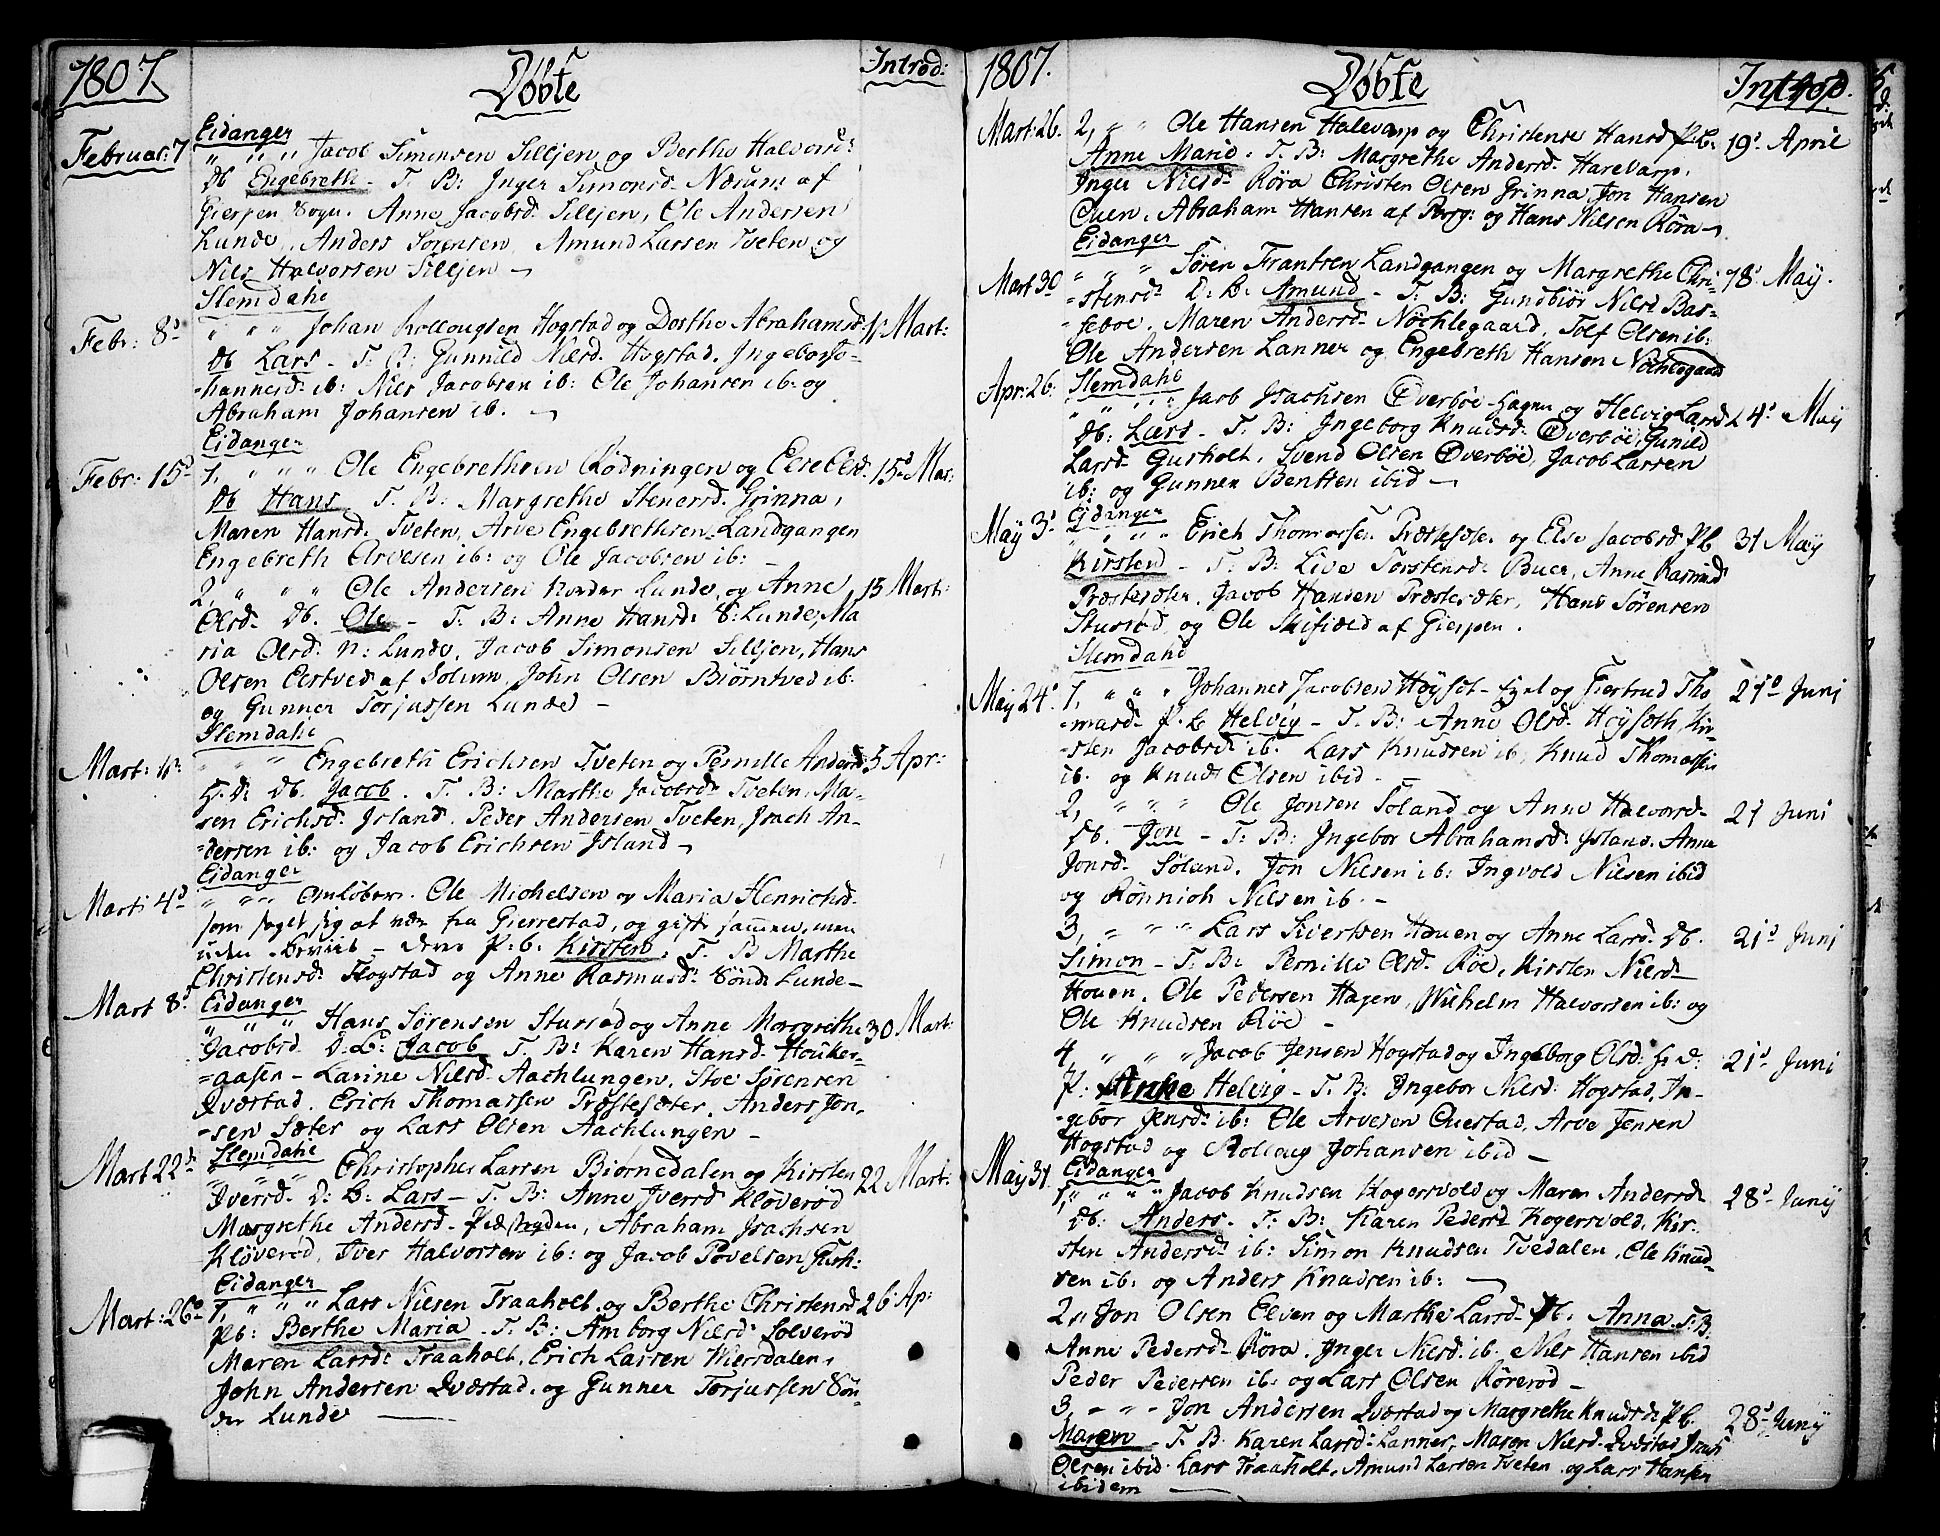 1807. Døbte Introd:
Eidanger
Februar: 7 " " " Jacob Simonsen Silljen og Berthe Halvorsd:
Db Engebreth - T. B: Inger Simonsd. Næsum af
Gierpen Sogn. Anne Jacobsd. Silljen, Ole Andersen
Lunde, Anders Sørensen, Amund Larsen Tveten og
Niels Halvorsen Silljen -
Slemdahl
Febr: 8d " " " Johan Rollougsen Hogstad og Dorthe Abrahamsd: 1 Mart:
Db Lars - T. B: Gunnild Nielsd. Hogstad, Ingebor Jo-
-hannesd: ib: Niels Jacobsen ib: Ole Johansen ib: og
Abraham Johansen ib. -
Eidanger
Febr: 15d 1, " " " Ole Engebrethsen Rødningen og Else Olsd. 15d Mar:
Db Hans T. B: Margrethe Stenersd. Grinna,
Maren Hansd. Tveten, Arve Engebrethsen Landgangen
Engebreth Arvesen ib: og Ole Jacobsen ib: -
2, " " " Ole Andersen Norder Lunde, og Anne 15 Mart:
Olsd. Db. Ole - T. B: Anne Hansd: S: Lunde, Ma
ria Olsd. N: Lunde, Jacob Simonsen Silljen, Hans
Olsen Eestved af Solum, John Olsen Biørntved ib:
og Gunner Torjussen Lunde -
Slemdahl
Mart: 1d: " " " Engebreth Erichsen Tveten og Pernille Andersd 5 Apr:
H: D: Db. Jacob. T. B: Marthe Jacobsd: Tveten, Ma-
ren Erichsd. Island, Peder Andersen Tveten, Isach An-
-dersen ib: og Jacob Erichsen Island -
Eidanger
Mart: 4d " " " Omløber. Ole Michelsen og Maria Henrichsd.
som saget sig at være fra Gierrestad, og gift sammen, men
uden Beviis - deres P. b. Kirsten, T. B Marthe
Christensd. Hogstad og Anne Rasmusd: Sønd: Lunde -
Eidanger
Mart 8d " " " Hans Sørensen Stusrød og Anne Margrethe 30 Mart:
Jacobsd. D: b: Jacob T. B: Karen Hansd. Houker-
=aasen - Larine Nielsd. Aachlungen, Stoe Sørensen
Qvæstad, Erich Thomassen Præstesæter, Anders Jon-
-sen Sæter og Lars Olsen Aachlungen -
Slemdahl
Mart 22d " " " Christopher Larsen Biørnedalen og Kirsten 22 Mart:
Iversd. D: b: Lars - T. B: Anne Iversd Kløverød
Margrethe Andersd. Abraham Isachsen
Kløverød, Iver Halvorsen ib: og Jacob Povelsen
Eidanger
Mart: 26d 1, " " " Lars Nielsen Traaholt og Berthe Christensd 26 Ap:
Pb: Berthe Maria - T. B: Amborg Nielsd. Solverød
Maren Larsd: Traaholt, Erich Larsen Wiersdalen,
John Andersen Qvæstad, og Gunner Torjussen Søn-
der Lunde
1807. Døbte Introd.
Mart: 26. 2, " " Ole Hansen Halevarp og Christense Hansd P.b. 19d April
Anne Marie. T. B: Margrethe Andersd. Harevarp,
Inger Nielsd. Røra Christen Olsen Grinna Jon Hansen
Ouen, Abraham Hansen af Porsg: og Hans Nilsen Røra -
Eidanger
Mart 30 " " " Søren Frantsen Landgangen og Margrethe Chri- 18d May.
=stensd: D: b: Amund - T. B: Gundbiør Nielsd Bas-
-seboe. Maren Andersd. Nøchlegaard, Tolf Olsen ib:
Ole Andersen Lanner og Engebreth Hansen Nøchlegaard
Slemdahl
Apr: 26. " " " Jacob Isachsen Øverbøe Hagen og Helvig Larsd 24d May
Db: Lars - T. B: Ingeborg Knudsd. Øverbøe, Gunild
Larsd. Gusholt, Svend Olsen Øverbøe, Jacob Larsen
ib: og Gunner Bentsen ibid -
Eidanger
May 3d " " " Erich Thomassen Præstesæter og Else Jacobsd. Pb. 31 May
Kirsten - T. B: Live Torstensd: Buer, Anne Rasmusd
Præstesæter, Jacob Hansen Præstesæter, Hans Sørensen
Stusrød, og Ole Skifield af Gierpen.
Slemdahl
May 24d 1, " " " Johannes Jacobsen Høyset og Giertrud Tho 21d Juni
-masd. P. b Helvig - T. B: Anne Olsd. Høyseth, Kir-
-sten Jacobsd: ib. Lars Knudsen ib, Knud Thomassen
ib. og Knud Olsen ibid -
2, " " " Ole Jonsen Soland og Anne Halvorsd- 21 Juni
Db. Jon - T. B: Ingebor Abrahamsd: Island, Anne
Jonsd. Søland, Jon Nielsen ib: Ingvold Nielsen ibid
og Rønnich Nielsen ib. -
3, " " " Lars Sivertsen Houen og Anne Larsd. Db. 21d Juni
Simon - T. B: Pernille Olsd. Røe, Kirsten Nielsd
Houen, Ole Pedersen Hagen, Wilhelm Halvorsen ib: og
Ole Knudsen Røe -
4, " " " Jacob Jensen Hogstad og Ingeborg Olsd. H: D: 21d Juni
P: Anne Helvig - T. B: Ingebor Nielsd: Hogstad, In-
-gebor Jensd: ib: Ole Arvesen Questad, Arve Jensen
Hogstad og Rolloug Johansen ibid -
Eidanger
May 31 1, " " " Jacob Knudsen Kogersvold og Maren Andersd: 28d Junij
Db: Anders. T: B: Karen Pedersd Kogersvold, Kir-
sten Andersd: ib: Simon Knudsen Tvedalen, Ole Knud-
sen ib: og Anders Knudsen ib: -
2, " Jon Olsen Elven og Marthe Larsd - Pb. Anna. T: B:
Anne Pedersd. Røra, Inger Nielsd. ib. Nils Hansen ibid
Peder Pedersen ib: og Lars Olsen Rørerød -
3, " " " Jon Andersen Qvæstad og Margrethe Knudsd: Pb. 28d Junij
Maren - T. B: Karen Larsd: Lanner, Maren Nielsd. Qvæstad
Olsen ibid. Lars Traaholt, Amund Larsen Tveten og Lars Hansen
ibidem